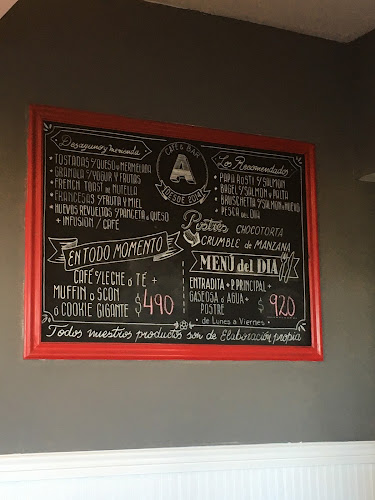 Desayuno y merienda
• TOSTADAS S/QUESO o MERMELADA
GRANOLA S/YOGUR Y FRUTAS
• FRENCH TOAST de NUTELLA
FRANCESAS S/FRUTA Y MIEL
• HUEVOS REVUELTOS S/PANCETA o QUESO
+ INFUSIÓN / CAFÉ
CAFÉ & BAR
A
DESDE 2021
Los Recomendados
• PAPA ROSTI S/SALMON
• BAGEL S/SALMON o PALTA
• BRUSCHETTA S/SALMON o HUEVO
• PESCA del DIA
Postres
CHOCOTORTA
CRUMBLE de MANZANA
EN TODO MOMENTO
CAFÉ S/LECHE o TÉ +
MUFFIN o SCON
ó COOKIE GIGANTE
$490
MENÚ del DIA
ENTRADITA + P. PRINCIPAL +
GASEOSA ó AGUA +
POSTRE
$ 920
• de Lunes a Viernes •
Todos nuestros productos son de Elaboración propia